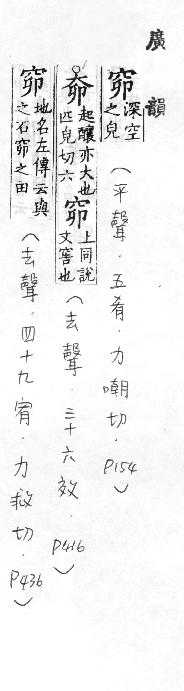 廣韻
窌深空之皃（平聲．五肴．力嘲切．P154）
○奅起釀亦大也匹皃切六窌上同說文窖也（去聲．三十六效．P416）
窌地名左傳云與之石窌之田（去聲．四十九宥．力救切．P436）